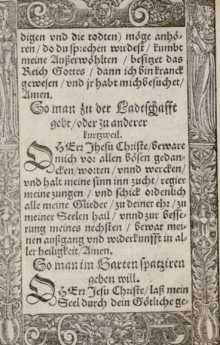 digen vnd die todten) möge anhö-
ren / do du sprechen würdest / kumbt
meine Außerwöhlten / besitzet das
Reich Gottes / dann ich bin kranck
gewesen / vnd jr habt mich besuchet /
Amen.
So man zu der Ladtschafft
geht / oder zu anderer
kurtzweil.
O HErr Jhesu Christe / beware
mich vor allen bösen gedan-
cken / worten / vnnd wercken /
vnd halt meine sinn inn zucht / regier
meine zungen / vnd schick ordenlich
alle meine Glieder / zu deiner ehr / zu
meiner Seelen hail / vnnd zur besse-
rung meines nechsten / bewar mei-
nen außgang vnd widerkunfft in al-
ler heiligkeit / Amen.
So man im Garten spatziren
gehen will.
O HErr Jesu Christe / laß mein
Seel durch dein Götliche ge-